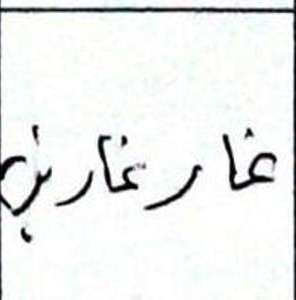 غار غارين